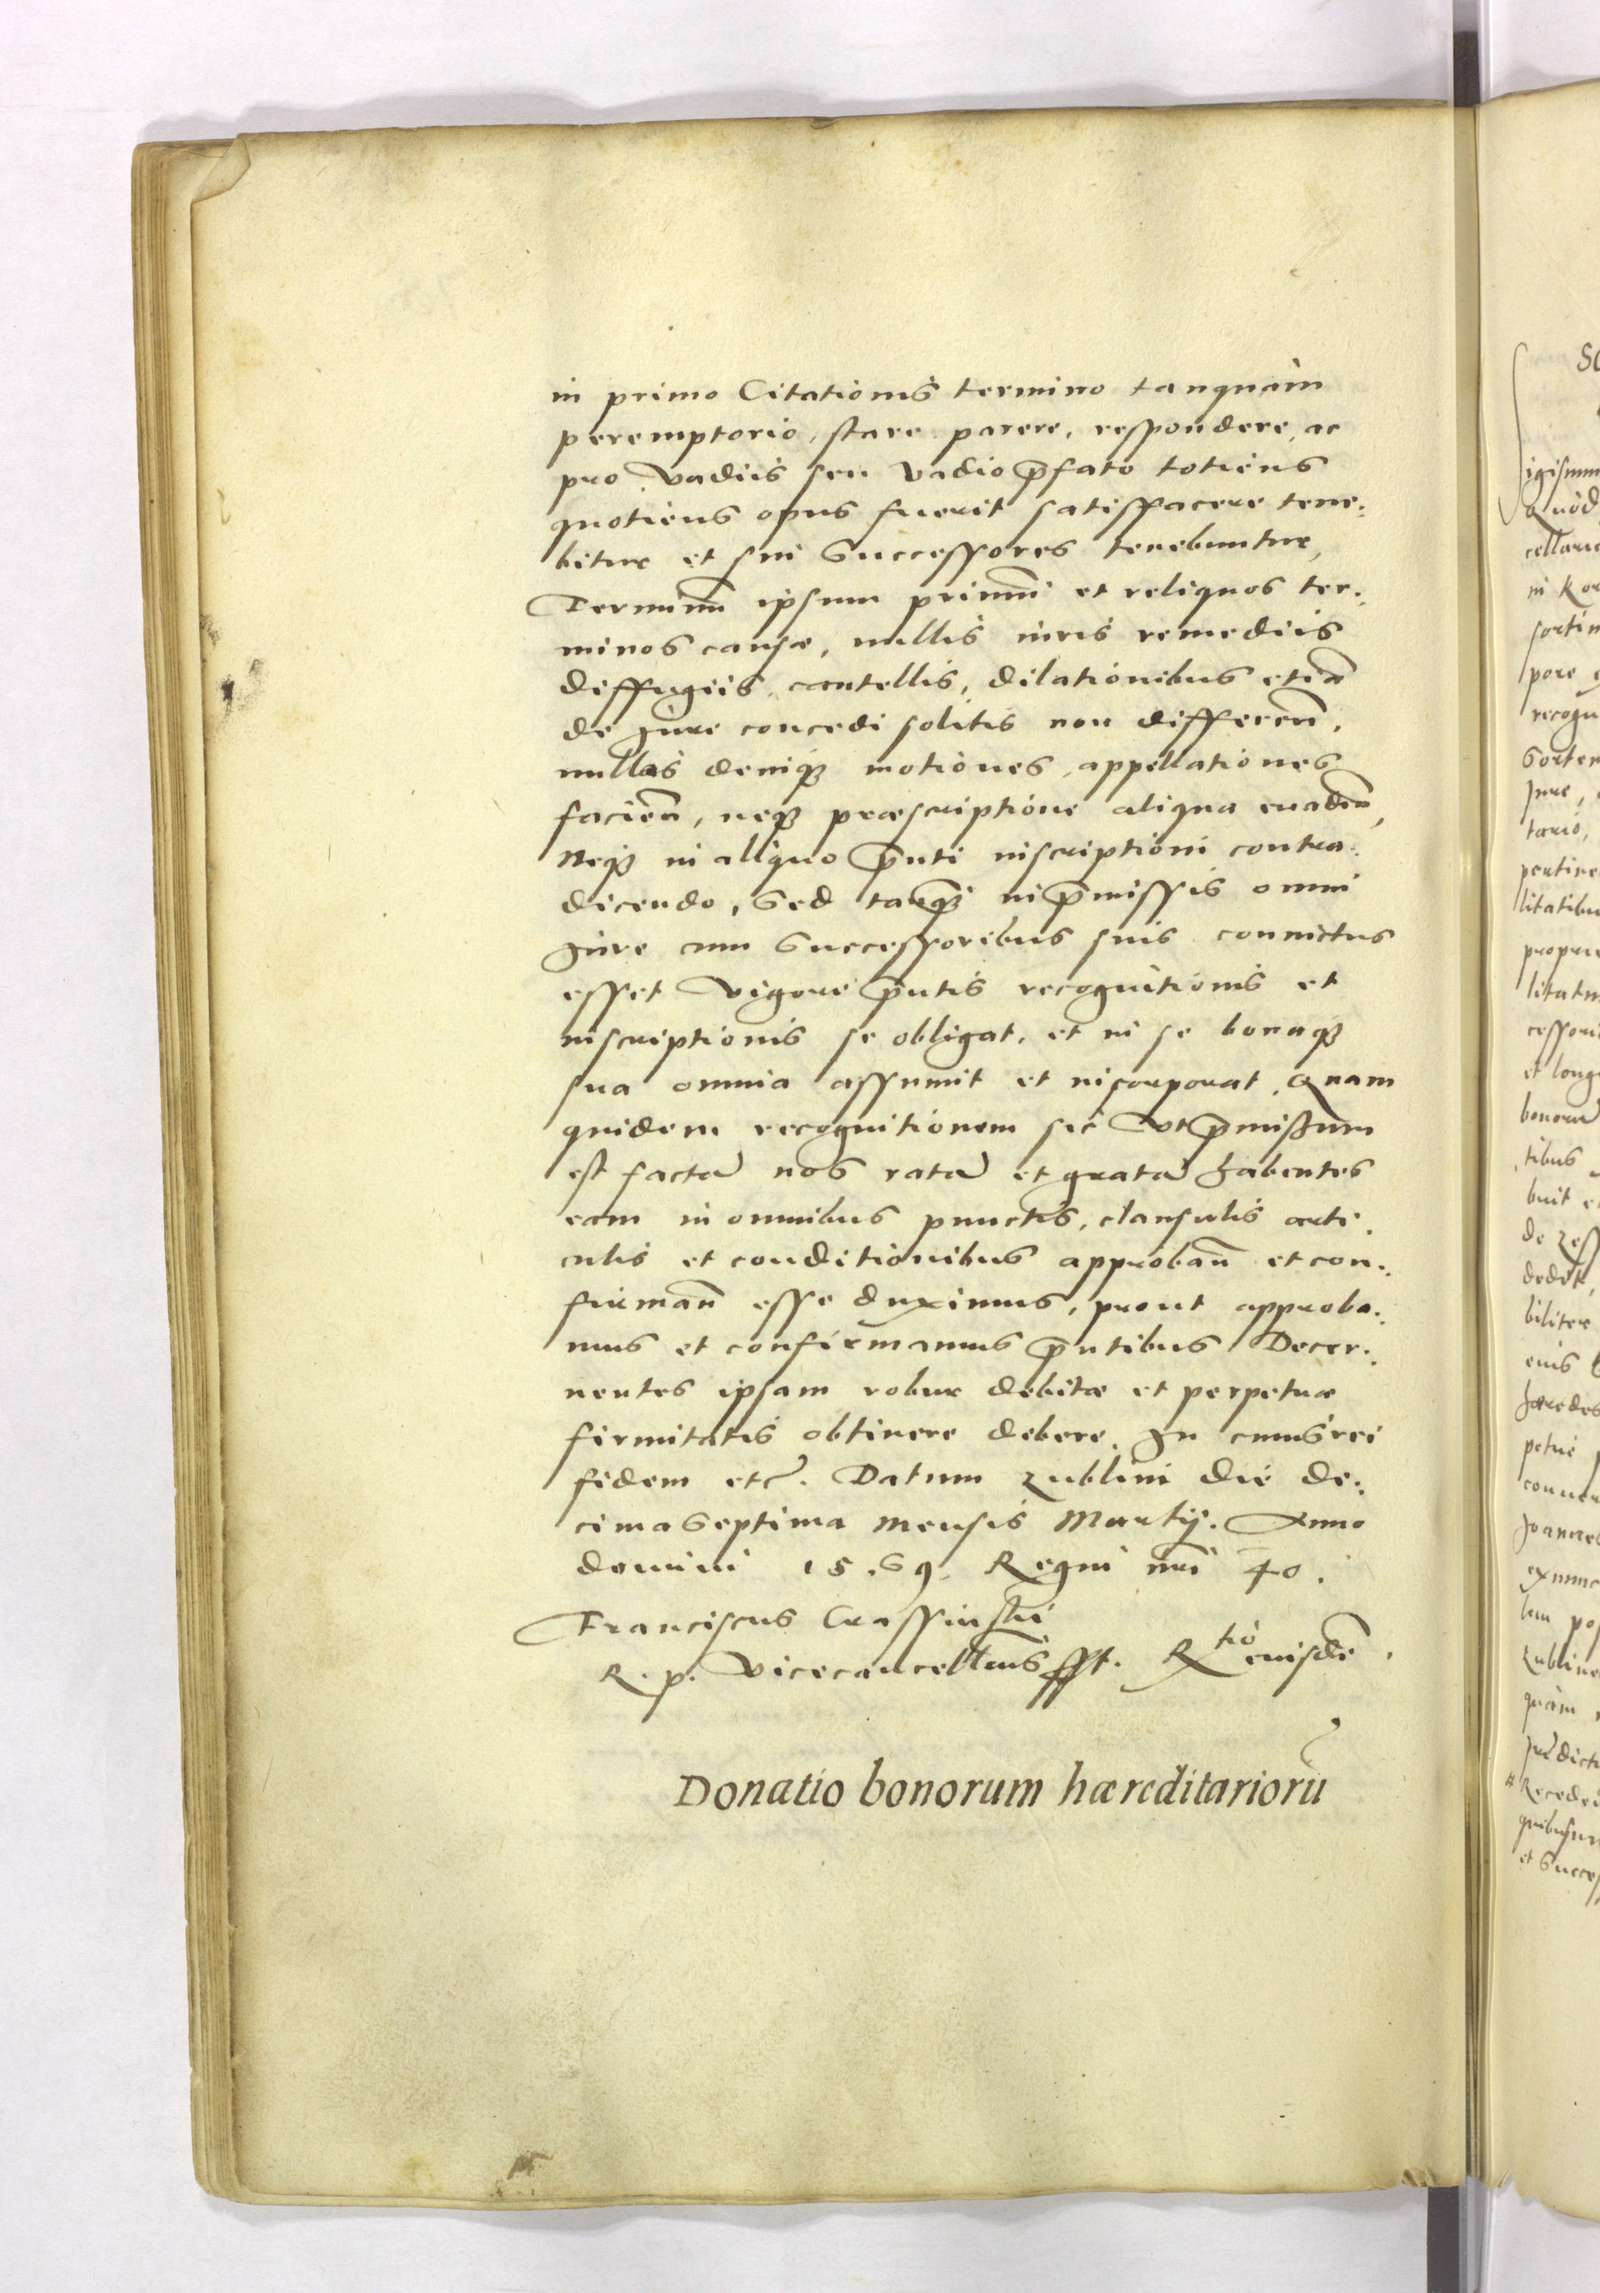 in primo Citationis termino tanquam
peremptorio, stare parere, respondere, ac
pro vadiis seu vadio p̄fato totiens
quotiens opus fuerit satisfacere tene:
bitur et sui Successores tenebuntur,
Terminū ipsum primū et reliquos ter:
minos causæ, nullis iuris remediis
diffugiis, cautellis, dilationibus etiā
de Jure concedi solitis non differeñ,
nullas deniqꝫ motiones, appellationes
facieñ, neqꝫ præscriptione aliqua euadeñ,
Neqꝫ in aliquo p̄nti inscriptioni contra:
dicendo, Sed tanqꝫ in p̄missis omni
Jure cum Successoribus suis conuictus
esset vigore p̄ntis recognitionis et
inscriptionis se obligat, et in se bonaqꝫ
sua omnia assumit et incorporat. Quam
quidem recognitionem sic vt p̄missum
est factā nos ratā et gratā habentes
eam in omnibus punctis, clausulis arti:
culis et conditionibus approbañ et con:
firmañ esse duximus, prout approba:
mus et confirmamus p̄ntibus Decer:
nentes ipsam robur debitæ et perpetuæ
firmitatis obtinere debere. In cuius rei
fidem etc̄. Datum Lublini die de:
cima Septima mensis Martij. Anno
domini 1569. Regni nr̄i 40.
Franciscus Crassinski
R. p. Vicecancellarius sst. Rtio eiusdē.
Donatio bonorum hæreditariorū